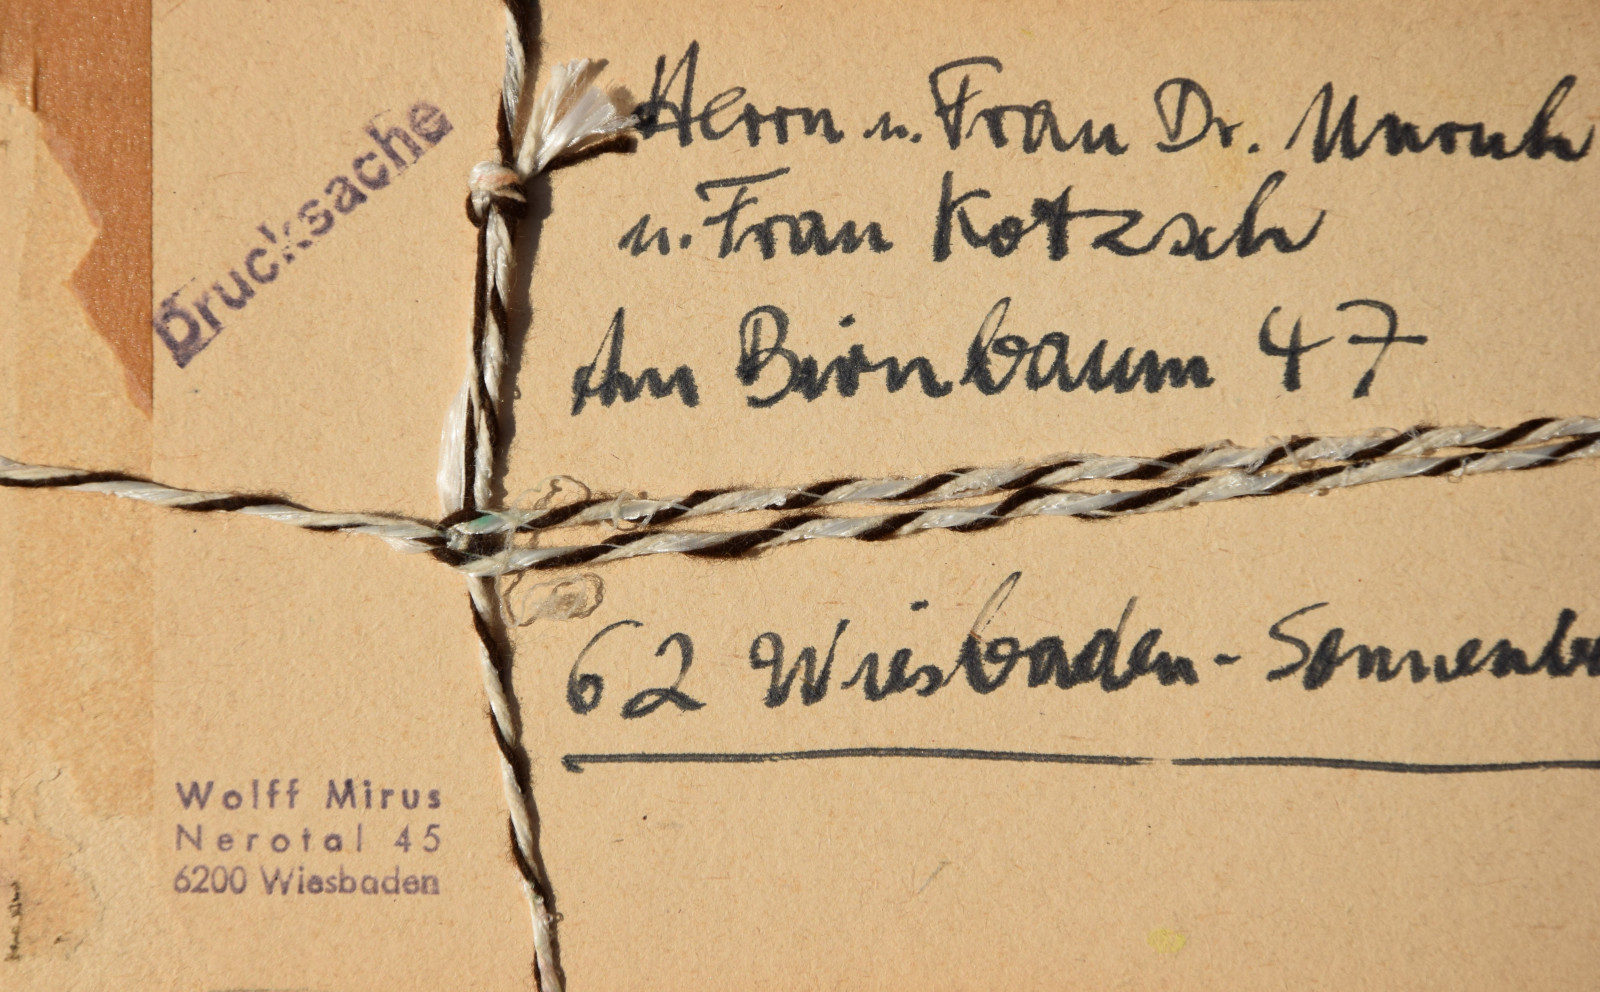 Drucksache
Herrn u. Frau Dr. Unruh
u. Frau Kotzsch
Am Birnbaum 47
62 Wiesbaden-Sonnenb
Wolff Mirus
Nerotal 45
6200 Wiesbaden